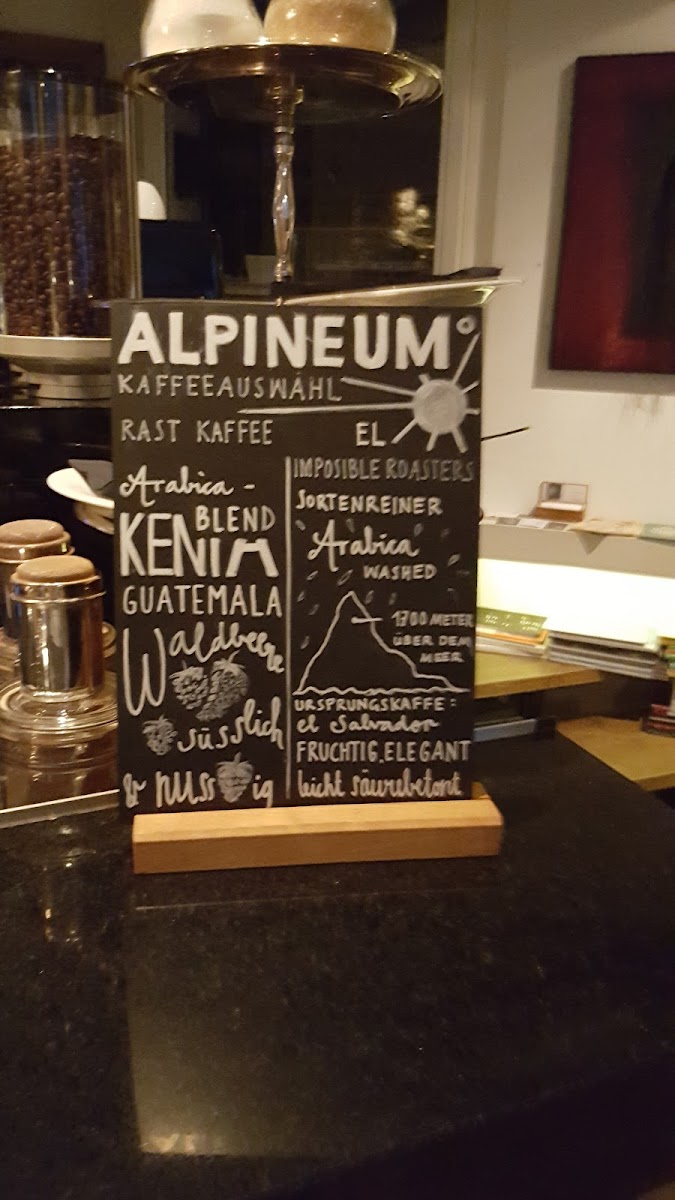 ALPINEUM°
KAFFEEAUSWAHL
RAST KAFFEE
Arabica-
BLEND
KENIA
GUATEMALA
Waldbeere
süsslich
& nussig
EL
IMPOSIBLE ROASTERS
SORTENREINER
Arabica
WASHED
1700 METER
ÜBER DEM
MEER
URSPRUNGSKAFFE:
el Salvador
FRUCHTIG, ELEGANT
leicht säurebetont